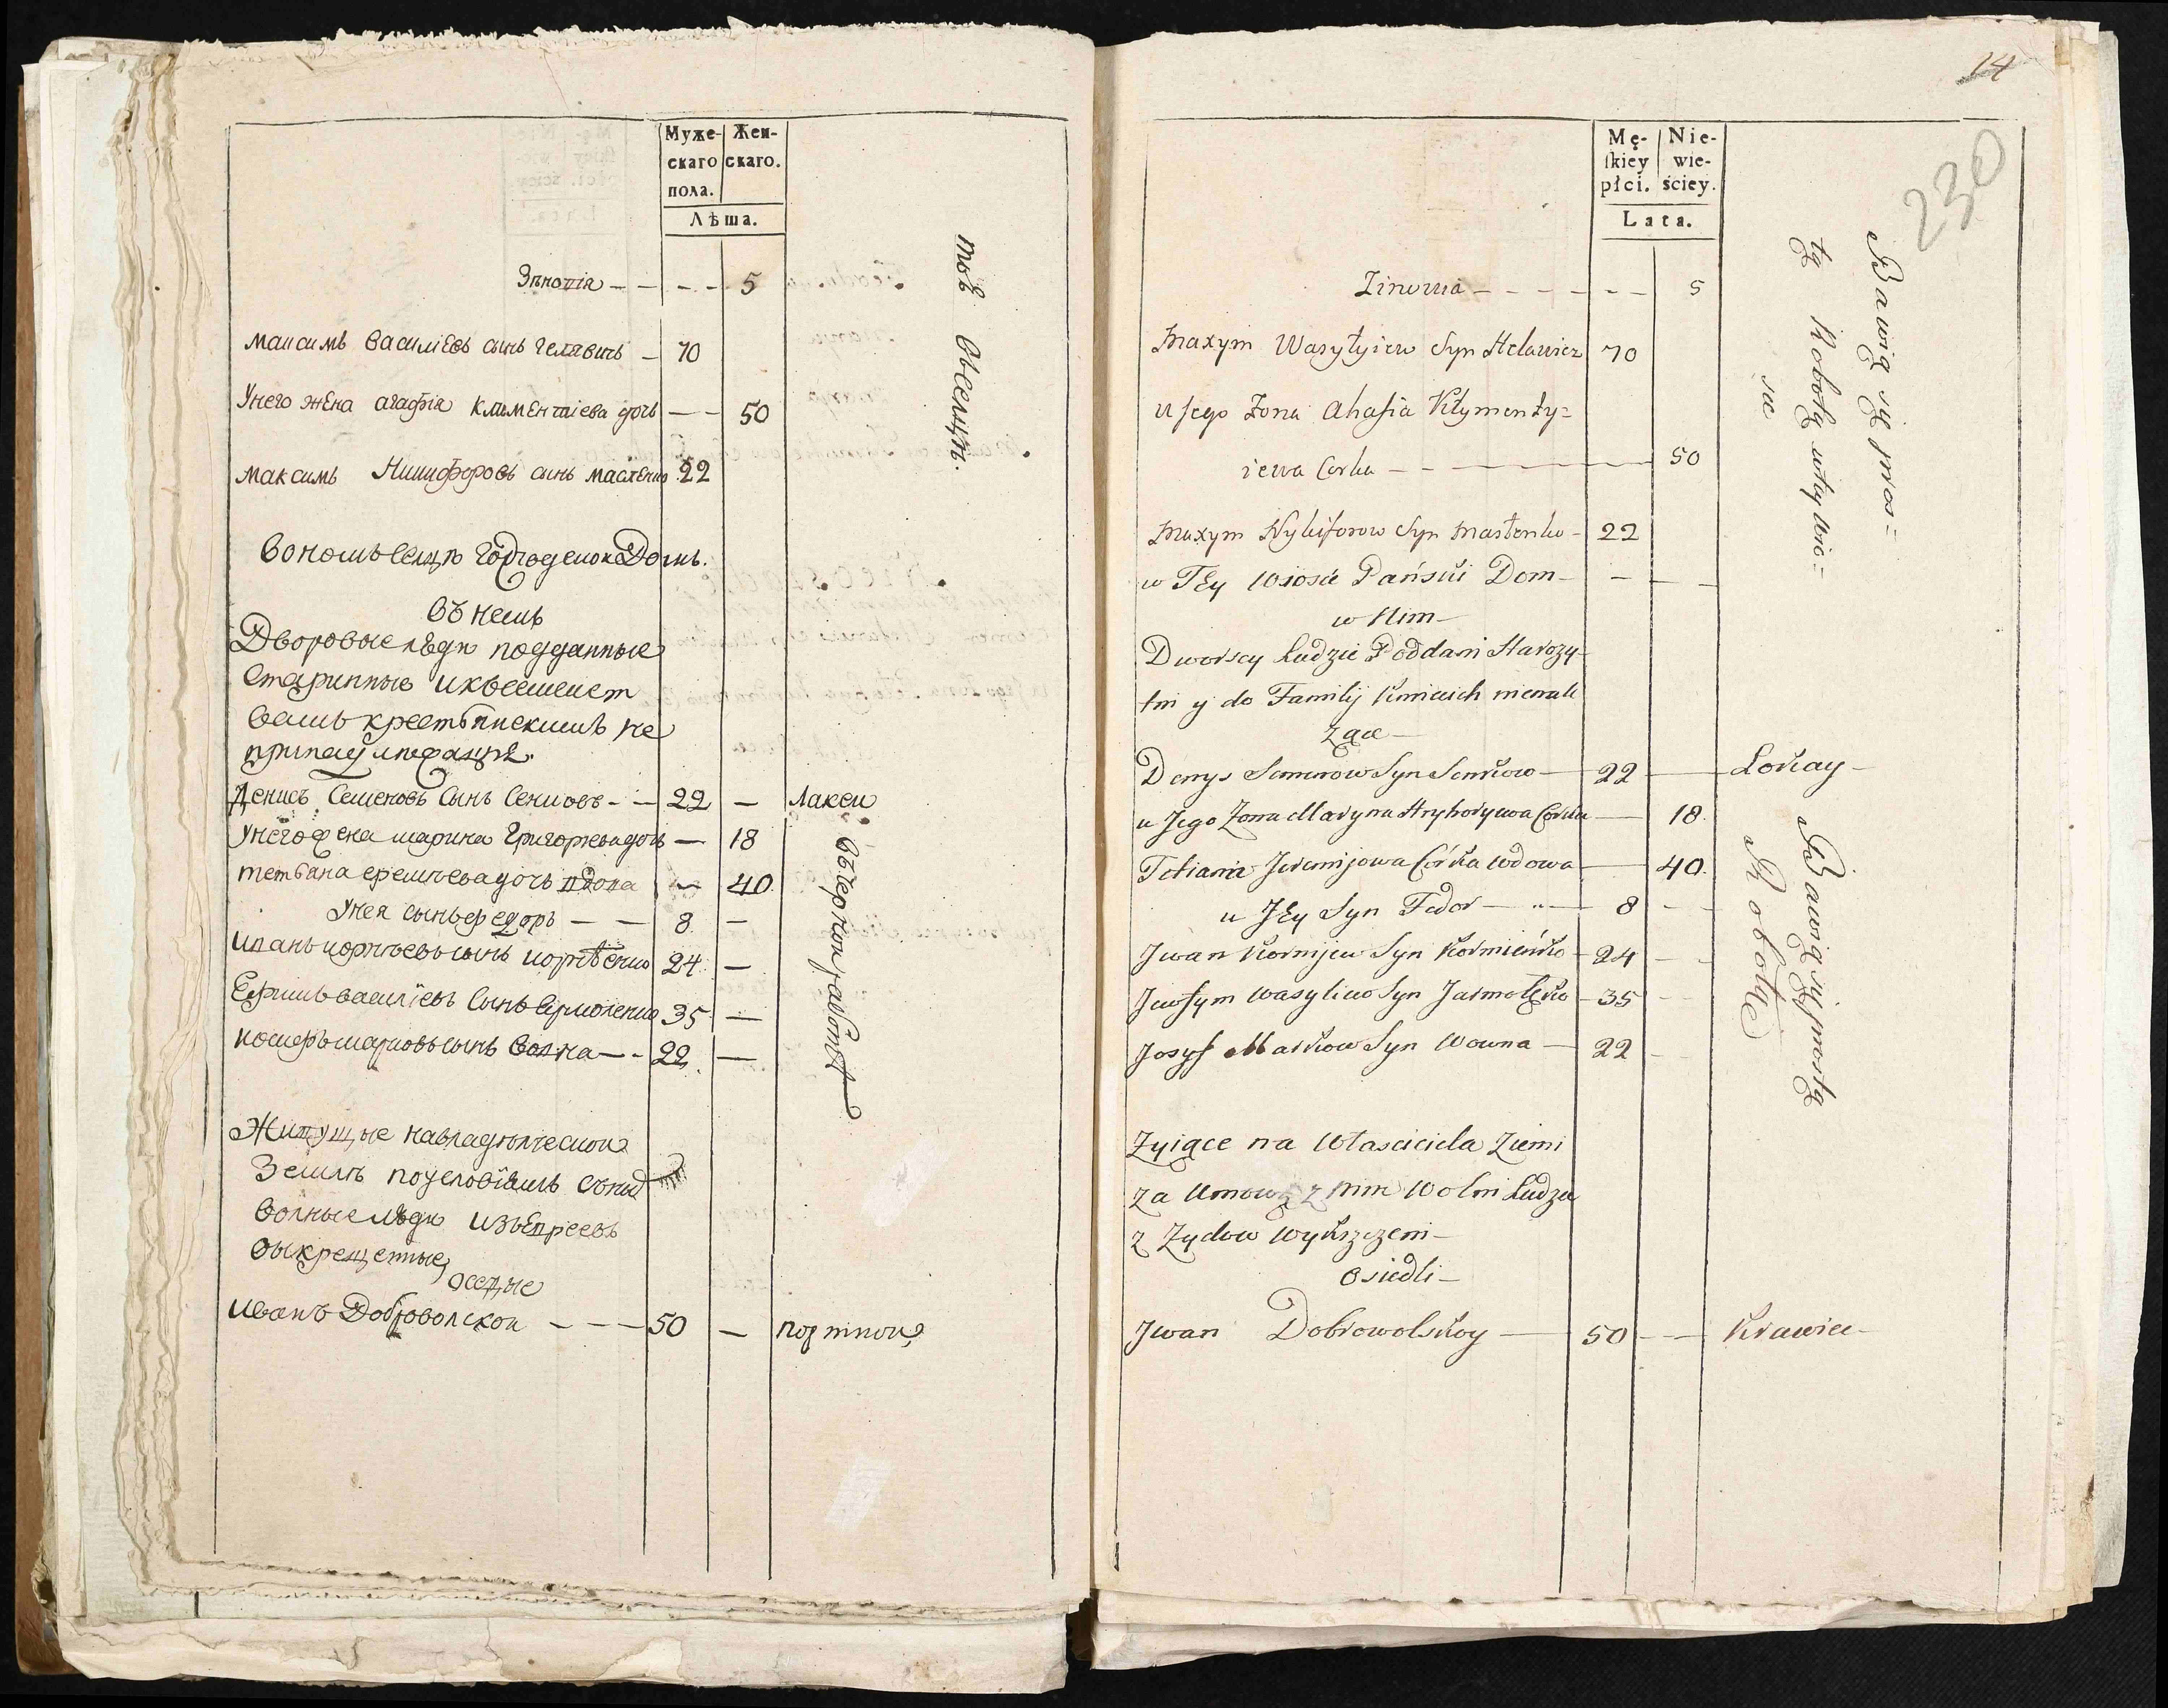 Муже-
скаго
пола.
Жен-
скаго.
Лѣта.
Зѣновія - - - - 5
максимъ василіевъ сынъ гелявичъ - 70
Унего жена агафія климентіева дочь - - 50
максимъ Никифоровъ сынъ масленко 22
Вономъ селцѣ Господской Домъ.
въ немъ
Дворовые люди подданные
Старинные
крестьянскимъ не
Денисъ Семеновъ Сынъ Сенковъ - - 22 - Лакей
Унего жена марина Григорьева дочь - 18
тетьана еремиева дочь вдова - 40.
Унея сынъ федоръ - - 8. -
Иванъ корніевъ сынъ корнѣенко 24. -
Ефимъ василіевъ Сынъ Ермоленко 35. -
иосифъ марковъ сынъ Вовна - - 22. -
Живущие навладѣлческой
Землѣ поусловіямъ снимъ
волные люди изъ Евреевъ
выкрещенные
оседлые
Иванъ Доброволской - - - 50 - портной
въчерной работѣ
въселцѣ.
14
230
Mę-
skiey
płci.
Nie-
wie-
ściey.
Lata.
Zinowia - - - - - - 5
Maxym Wasyłyiew Syn Helawicz 70
u jego Żona Ahafia Kłymenty=
iewa Corka - - 50
Maxym Nykiforow Syn Masłenko - 22
w Tey Wiosce Pański Dom - - - -
w Nim -
Dworscy Ludzie Poddani Starozy-
tni y do Familij Kmiecich nienale
żące -
Denys Semenow Syn Senkow - 22 - Lokay -
u Jego Zona Maryna Hryhorywa Corka - 18.
Tetiana Jeremijowa Córka wdowa - 40.
u Jey Syn Fedor - - 8 - -
Jwan Kornijew Syn Kornieńko - 24 - -
Jewfym Wasyliew Syn Jarmołęko - 35 - -
Josyf Markow Syn Wowna - 22 -
Żyiące na Własciciela Ziemi
za Umową z nim Wolni Ludzie
z Zydow Wykrzczeni -
Osiedli -
Jwan Dobrowolskoy - 50 - - Krawiec -
Bawią się pros=
tą Robotą w tey Wio=
sce
Bawią się prostą
Robotą